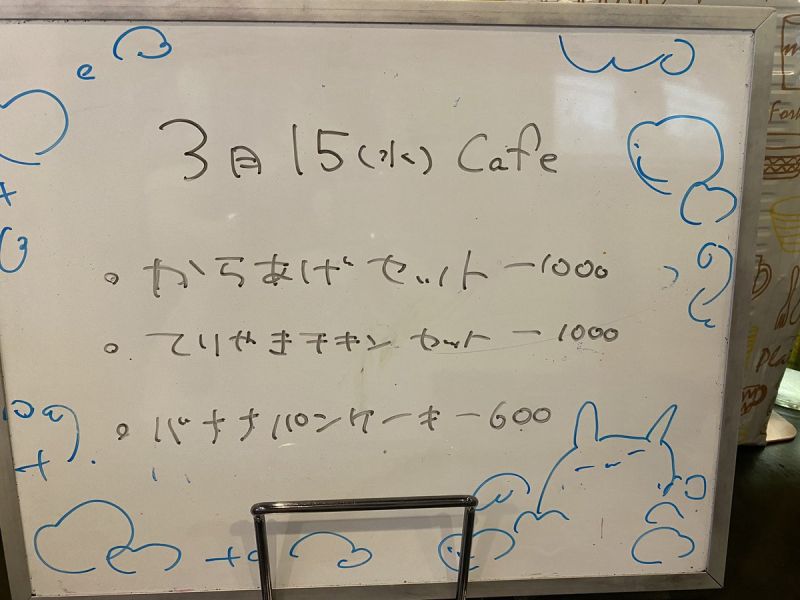 3月15(水) Cafe
。からあげセット ー1000
。てりやきチキンセット ー1000
。バナナパンケーキ ー600